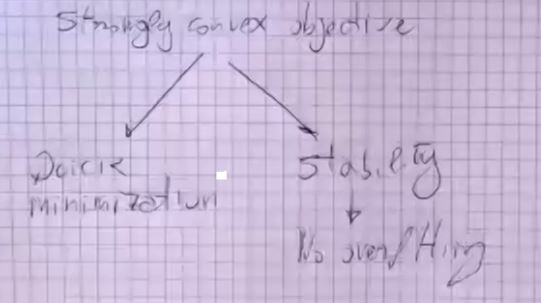 Strongly convex objective
Quick
minimization
Stability
No overfitting